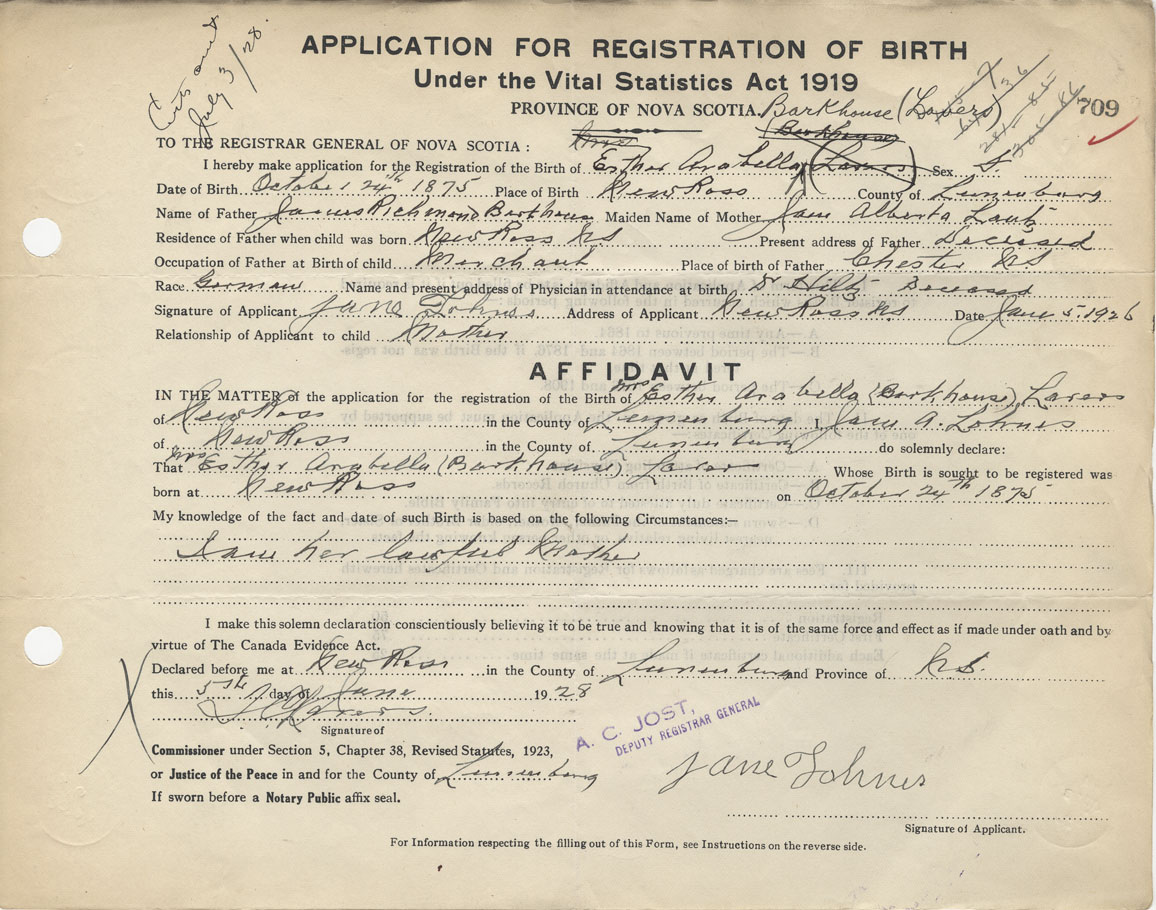 July 3/28.
APPLICATION FOR REGISTRATION OF BIRTH
Under the Vital Statistics Act 1919
PROVINCE OF NOVA SCOTIA. Barkhouse (Lavers)
709
Barkhouse
TO THE REGISTRAR GENERAL OF NOVA SCOTIA :
I hereby make application for the Registration of the Birth of Esther Arabella (Lavers) Sex F.
Date of Birth October 24th 1875 Place of Birth New Ross County of Lunenburg
Name of Father James Richmond Barkhouse Maiden Name of Mother Jane Alberta
Residence of Father when child was born New Ross NS Present address of Father Deceased
Occupation of Father at Birth of child Merchant Place of birth of Father Chester NS
Race German Name and present address of Physician in attendance at birth Dr Hiltz Deceased
Signature of Applicant Jane Lohnes Address of Applicant New Ross NS Date June 5. 1926
Relationship of Applicant to child Mother
AFFIDAVIT
IN THE MATTER of the application for the registration of the Birth of Mrs Esther Arabella (Barkhouse) Lavers
of New Ross in the County of Lunenburg I, Jane A. Lohnes
of New Ross in the County of Lunenburg do solemnly declare:
That Mrs Esther Arabella (Barkhouse) Laver Whose Birth is sought to be registered was
born at New Ross on October 24th 1875
My knowledge of the fact and date of such Birth is based on the following Circumstances:—
I am her lawful Mother
I make this solemn declaration conscientiously believing it to be true and knowing that it is of the same force and effect as if made under oath and by
virtue of The Canada Evidence Act.
Declared before me at New Ross in the County of Lunenburg and Province of N.S.
this 5th day of June 1928
Lavers.
Signature of
Commissioner under Section 5, Chapter 38, Revised Statutes, 1923,
or Justice of the Peace in and for the County of Lunenburg
If sworn before a Notary Public affix seal.
A. C. JOST,
DEPUTY REGISTRAR GENERAL
Jane Lohnes
Signature of Applicant.
For Information respecting the filling out of this Form, see Instructions on the reverse side.